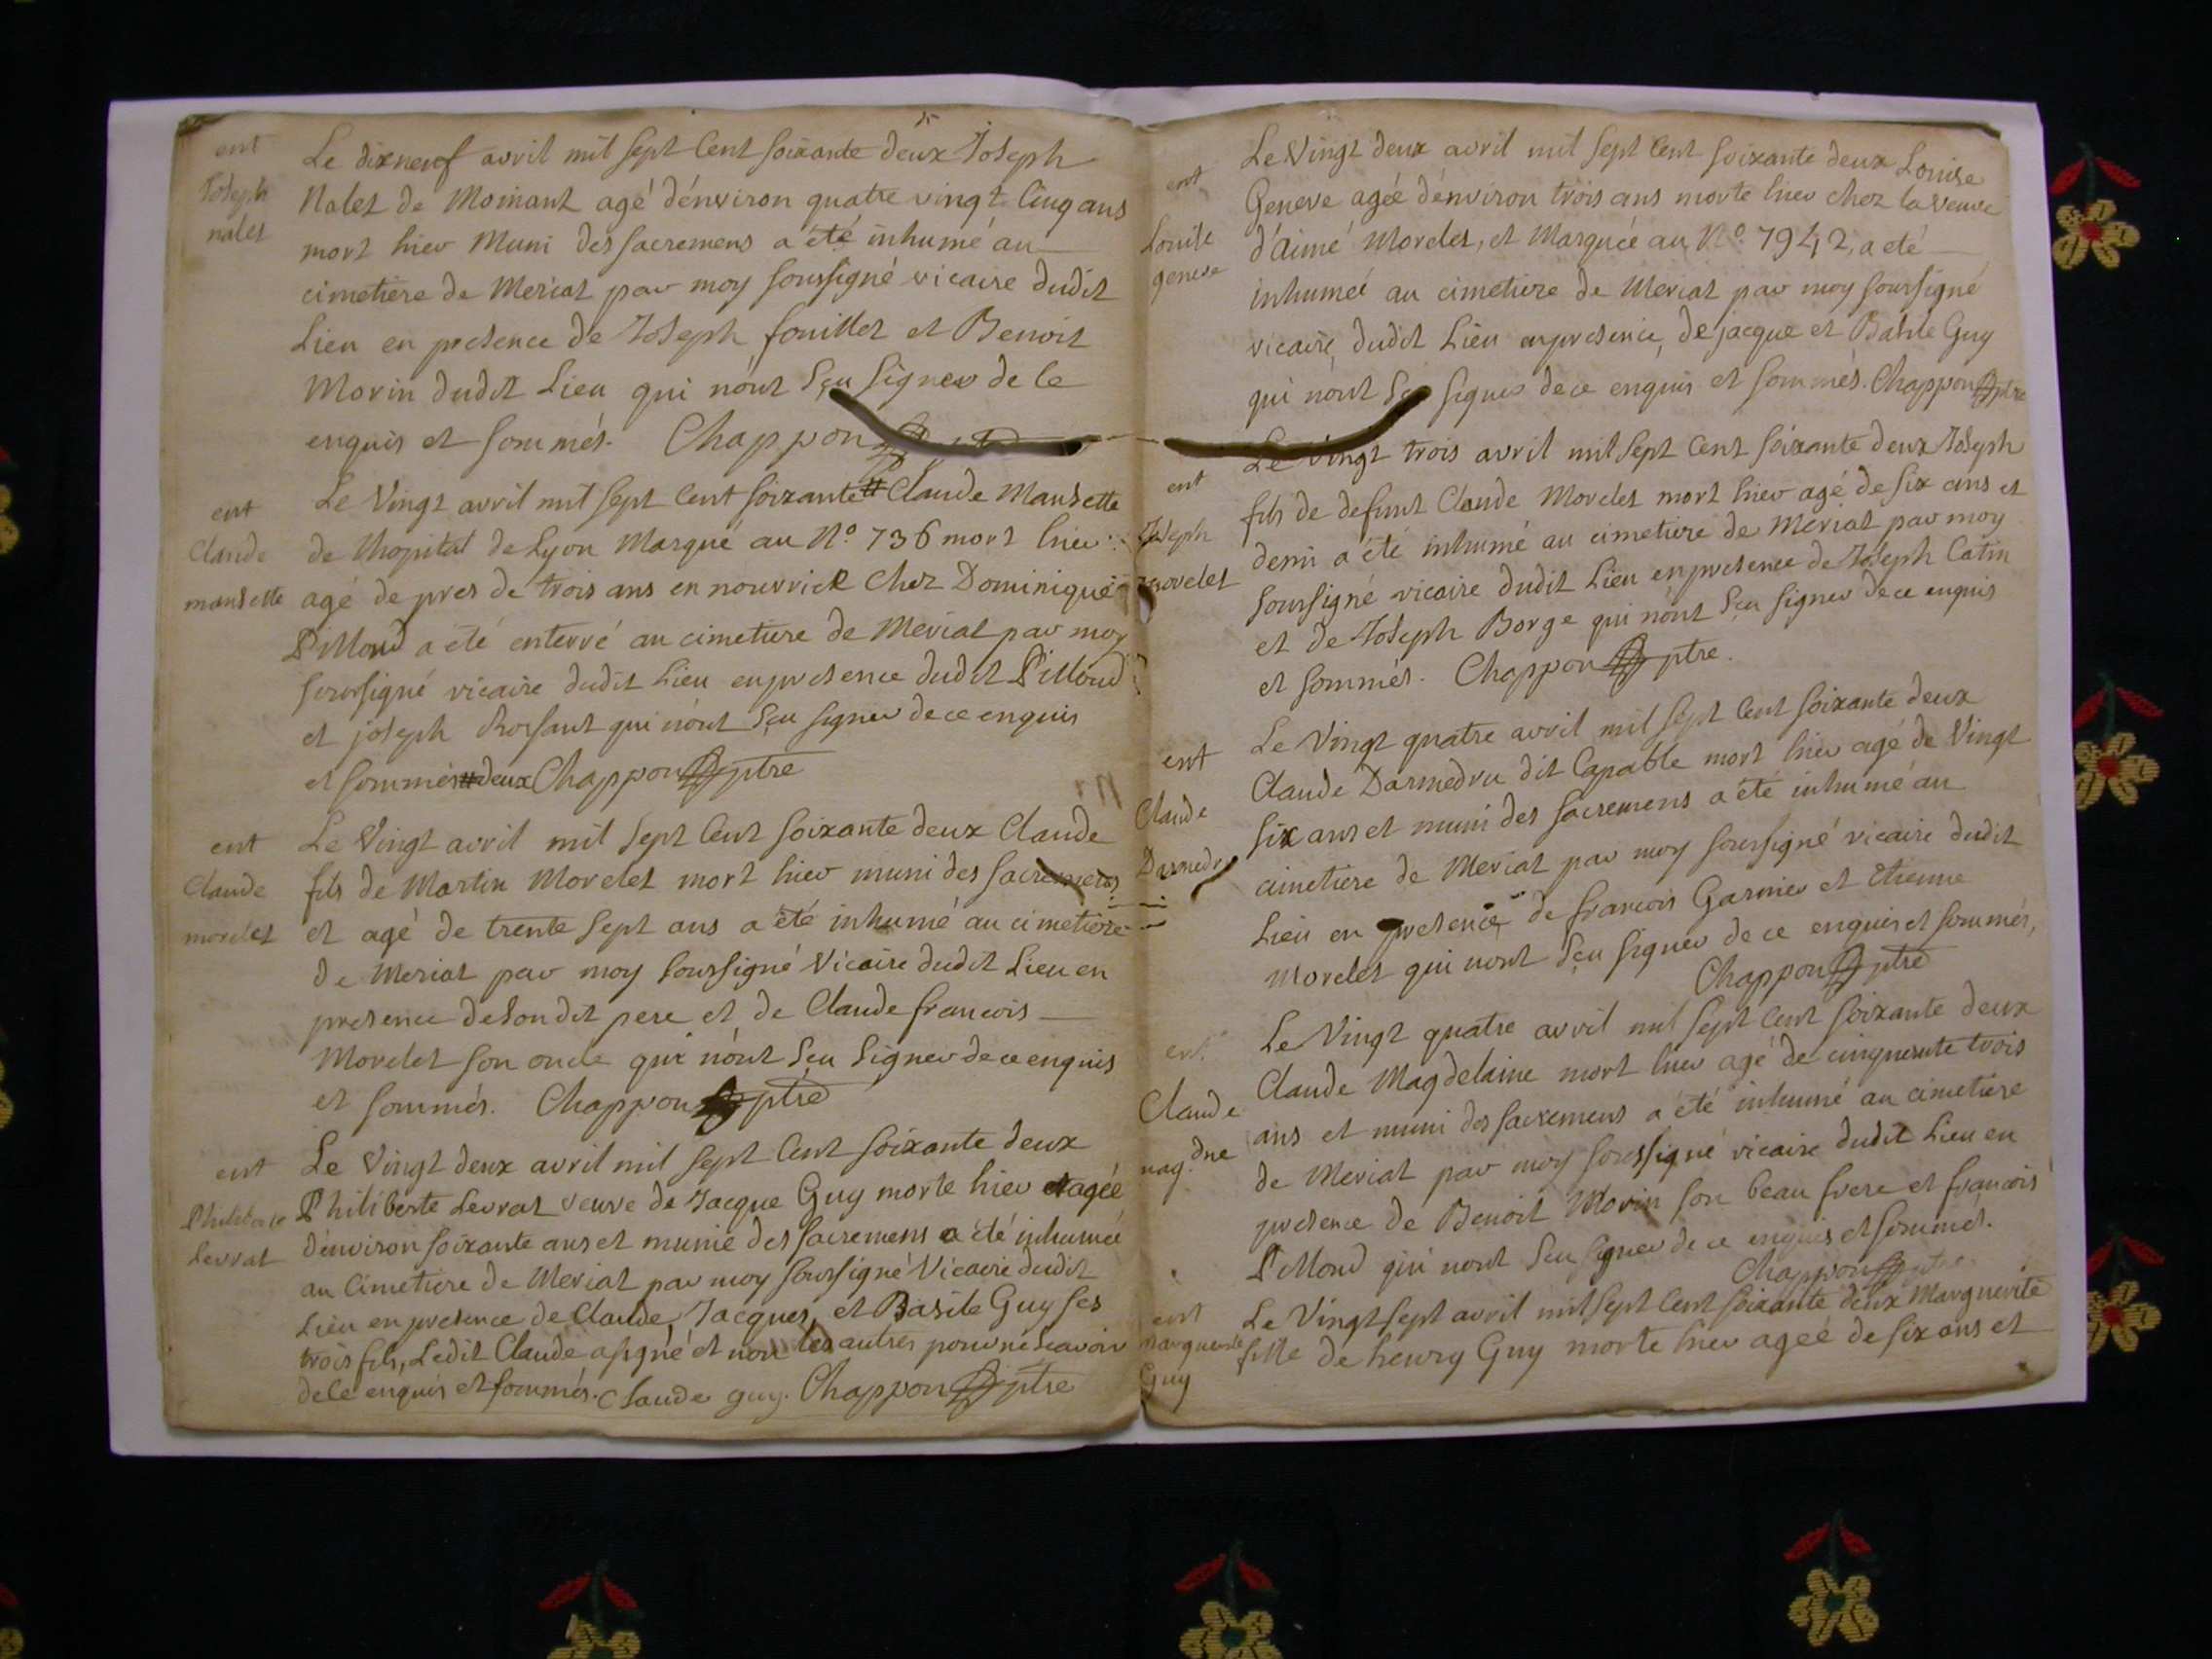 ent
Joseph
nalet
Le dixneuf avril mil sept Cent soixante deux Joseph
Nalet de Moinant agé d'énviron quatre vingt Cinq ans
mort hier Muni des sacremens a été inhumé au
cimetiere de Meriat par moy soussigné vicaire dudit
Lieu en presence de Joseph fouillet et Benoit
Morin dudit Lieu qui n'ont sçu signer de ce
enquis et sommés. Chappon ptre
ent
Claude
mansette
Le Vingt avril mil sept Cent soixante # Claude Mansette
de l'hopital de Lyon Marqué au N° 736 mort hier
agé de pres de trois ans en nourrice Chez Dominique
Pilloud a été enterré au cimetiere de Meriat par moy
soussigné vicaire dudit Lieu en presence dudit Pilloud
et joseph Rossant qui n'ont sçu signer de ce enquis
et sommés # deux Chappon ptre
ent
Claude
morelet
Le Vingt avril mil sept Cent soixante deux Claude
fils de Martin Morelet mort hier muni des sacremens
et agé de trente sept ans a été inhumé au cimetiere
de Meriat par moy soussigné Vicaire dudit Lieu en
presence de son dit pere et de Claude francois
Morelet son oncle qui n'ont sçu signer de ce enquis
et sommés. Chappon ptre
ent
Philiberte
Levrat
Le Vingt deux avril mil sept Cent soixante deux
Philiberte Levrat veuve de Jacque Guy morte hier et agée
d'énviron soixante ans et munie des sacremens a été inhumée
au Cimetiere de Meriat par moy soussigné Vicaire dudit
Lieu en presence de Claude, Jacques, et Basile Guy ses
trois fils, Ledit Claude a signé et non les autres pour ne scavoir
de ce enquis et sommés. Claude guy. Chappon ptre
ent
Louise
geneve
Le Vingt deux avril mil sept Cent soixante deux Louise
Geneve agée d'énviron trois ans morte hier chez la veuve
d'aimé Morelet, et Marquée au N° 7942, a eté
inhumée au cimetiere de Meriat par moy soussigné
vicaire, dudit Lieu en presence, de jacque et Basile Guy
qui n'ont sçu signer de ce enquis et sommés. Chappon ptre
ent
Joseph
morelet
Le Vingt trois avril mil sept Cent soixante deux Joseph
fils de defunt Claude Morelet mort hier agé de six ans et
demi a été inhumé au cimetiere de Meriat par moy
soussigné vicaire dudit Lieu en presence de Joseph Catin
et de Joseph Borge qui n'ont sçu signer de ce enquis
et sommés. Chappon ptre.
ent
Claude
Darmedru
Le Vingt quatre avril mil sept Cent soixante deux
Claude Darmedru dit Capable mort hier agé de Vingt
six ans et muni des sacremens a été inhumé au
cimetiere de Meriat par moy soussigné vicaire dudit
Lieu en presence de francois Garnier et Etienne
Morelet qui nont sçu signer de ce enquis et sommés,
Chappon ptre
ent.
Claude
mag.dne
Le Vingt quatre avril mil sept Cent soixante deux
Claude Magdelaine mort hier agé de cinquente trois
ans et muni des sacremens a été inhumé au cimetiere
de Meriat par moy soussigné vicaire dudit Lieu en
presence de Benoit Morin son beau frere et francois
Pilloud qui nont sçu signer de ce enquis et sommés.
Chappon ptre
ent
Marguerite
Guy
Le Vingt sept avril mil sept Cent soixante deux Marguerite
fille de henry Guy morte hier agée de six ans et